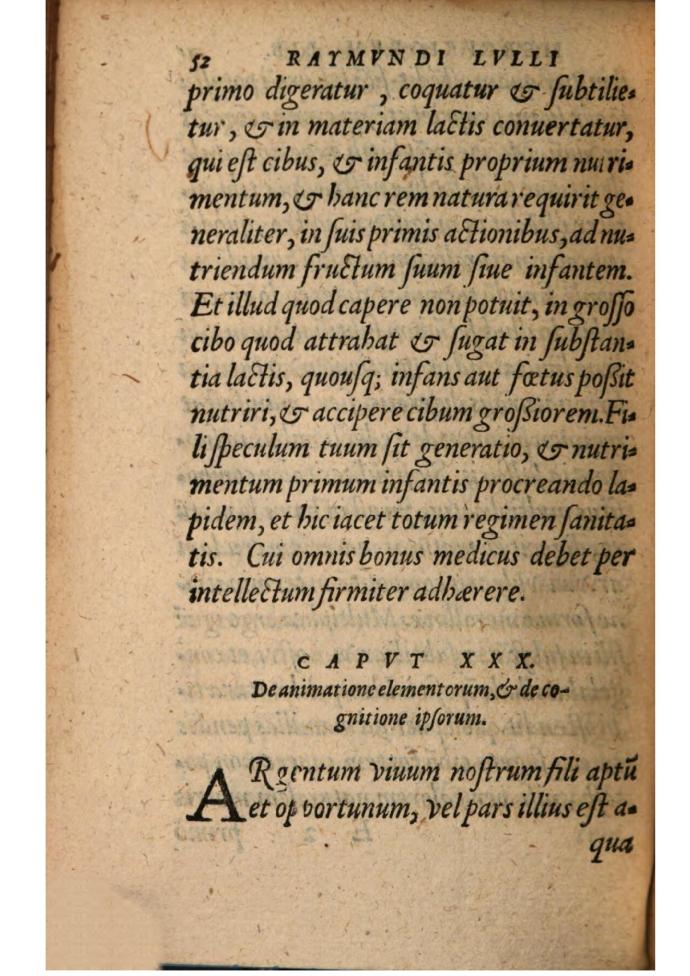 52 RAYMVNDI LVLLI
primo digeratur , coquatur & ſubtilie-
tur, & in materiam lactis conuertatur,
qui eſt cibus, & infantis proprium nutri-
mentum, & hanc rem natura requirit ge-
neraliter, in ſuis primis actionibus, ad nu-
triendum fructum ſuum ſiue infantem.
Et illud quod capere non potuit, in groſſo
cibo quod attrahat & ſugat in ſubſtan-
tia lactis, quouſq; infans aut fœtus poßit
nutriri, & accipere cibum großiorem. Fi-
li ſpeculum tuum ſit generatio, & nutri-
mentum primum infantis procreando la-
pidem, et hic iacet totum regimen ſanita-
tis. Cui omnis bonus medicus debet per
intellectum firmiter adhærere.
CAPVT XXX.
De animatione elementorum, & de co-
gnitione ipſorum.
ARgentum viuum noſtrum fili aptū
et opportunum, vel pars illius eſt a-
qua